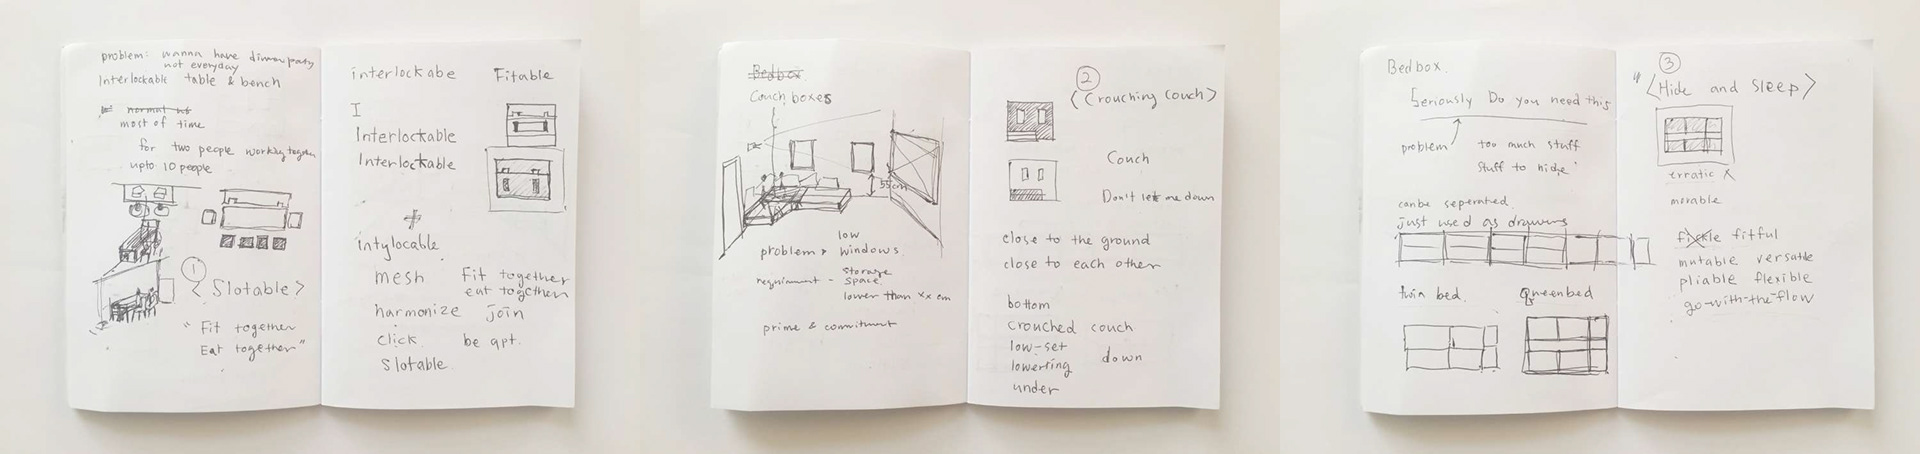 problem: wanna have dinner party
not everyday
Interlockable table & bench
normal us
most of time
for two people working together
upto 10 people
1
< Slotable >
" Fit together
Eat together"
interlockabe
Fitable
I
Interlockable
Interlockable
intylocable
mesh
Fit together
eat together
harmonize join
click. be apt.
Slotable
Bedbox
Couch boxes
55cm
low
problem windows.
requirment - storage
space.
lower than xx cm
prime & commitment
2
< Crouching couch >
Couch
Don't let me down
close to the ground
close to each other
bottom
crouched couch
low-set
lowerting down
under
Bedbox.
Seriously Do you need this
problem
too much stuff
stuff to hide'
canbe seperated.
just used as drawers
twin bed.
Queenbed
3
" < Hide and Sleep >
erratic X
movable
fickle fitful
mutable versatile
pliable flexible
go-with-the-flow